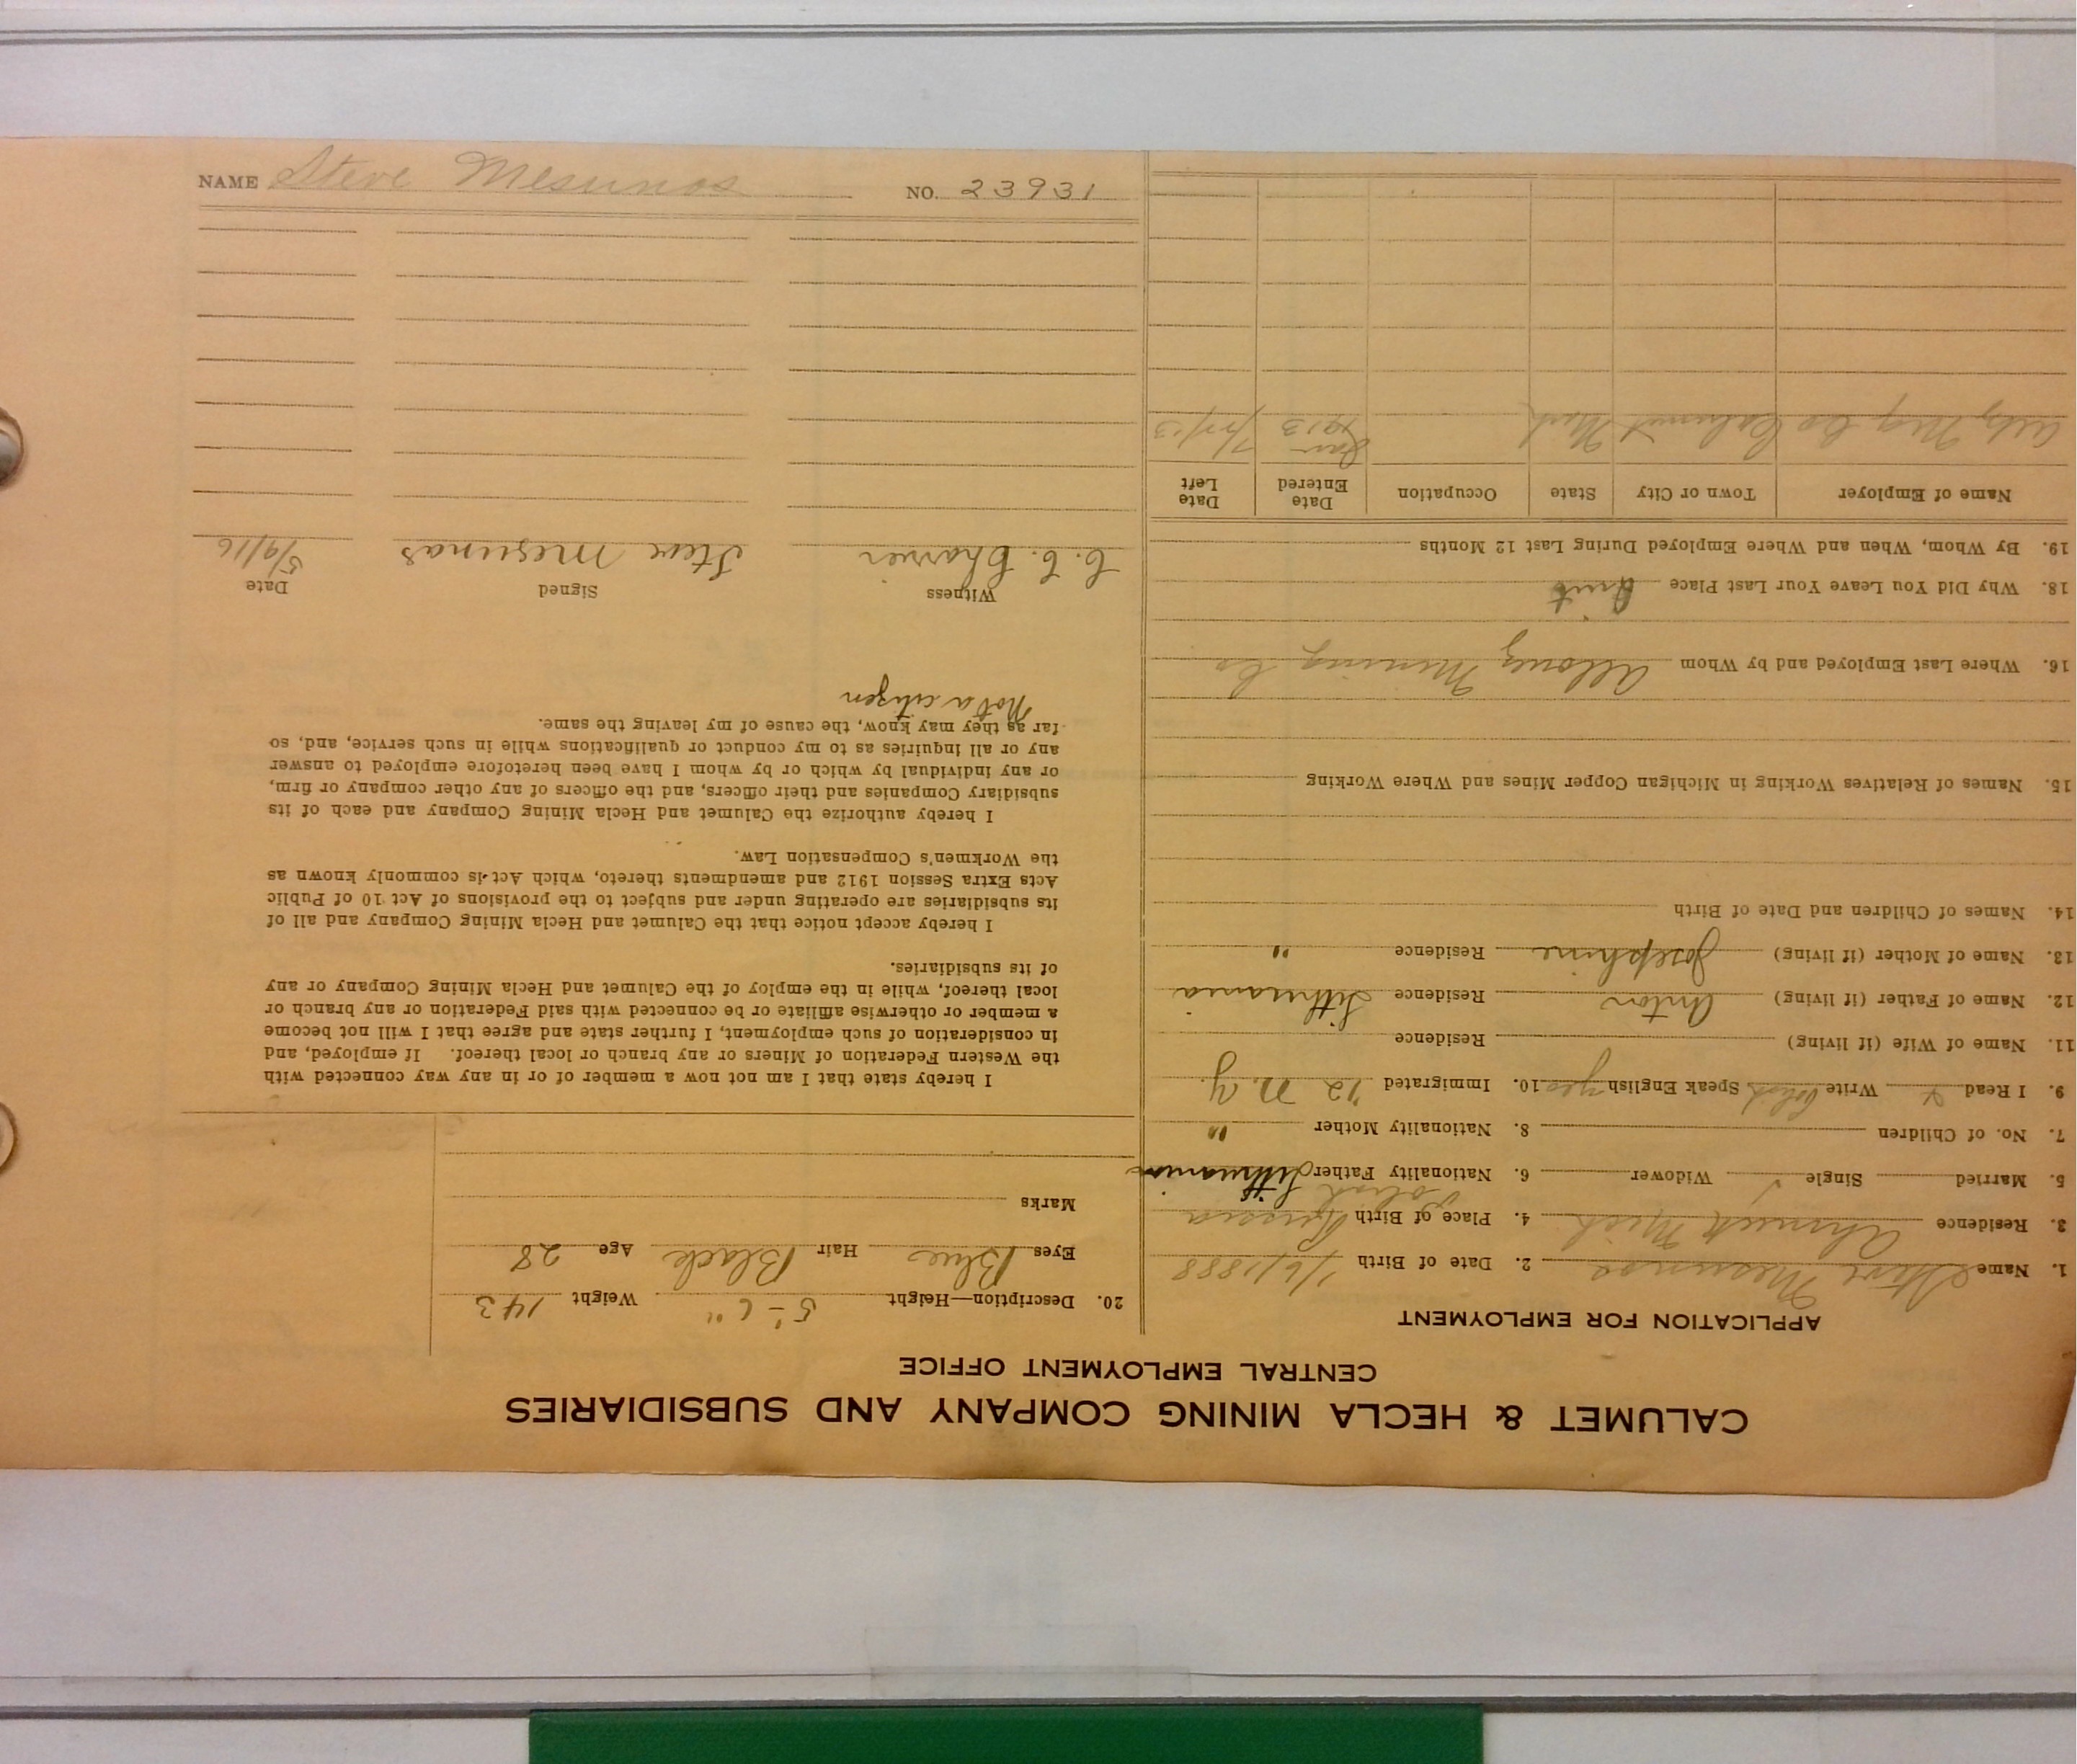 NAME Steve Mesunas NO. 23931
CALUMET & HECLA MINING COMPANY AND SUBSIDIARIES
CENTRAL EMPLOYMENT OFFICE
APPLICATION FOR EMPLOYMENT
1. Name Steve Mesunas 2. Date of Birth 1/6/1888
3. Residence Ahmeek Mich 4. Place of Birth Russia
Polish
5. Married Single ✓ Widower 6. Nationality Father Lithuanian
7. No. of Children 8. Nationality Mother "
9. I Read ✓ Write Polish Speak English yes 10. Immigrated '12 N.Y.
11. Name of Wife (if living) Residence
12. Name of Father (if living) Anton Residence Lithuania
13. Name of Mother (if living) Josephine Residence "
14. Names of Children and Date of Birth
15. Names of Relatives Working in Michigan Copper Mines and Where Working
16. Where Last Employed and by Whom Allouez Mining Co
18. Why Did You Leave Your Last Place Quit
19. By Whom, When and Where Employed During Last 12 Months
Name of Employer Town or City State Occupation Date Entered Date Left
Mg Co Calumet Mich Jan 1913
20. Description—Height 5'-6" Weight 143
Eyes Blue Hair Black Age 28
Marks
I hereby state that I am not now a member of or in any way connected with
the Western Federation of Miners or any branch or local thereof. If employed, and
in consideration of such employment, I further state and agree that I will not become
a member or otherwise affiliate or be connected with said Federation or any branch or
local thereof, while in the employ of the Calumet and Hecla Mining Company or any
of its subsidiaries.
I hereby accept notice that the Calumet and Hecla Mining Company and all of
its subsidiaries are operating under and subject to the provisions of Act 10 of Public
Acts Extra Session 1912 and amendments thereto, which Act is commonly known as
the Workmen's Compensation Law.
I hereby authorize the Calumet and Hecla Mining Company and each of its
subsidiary Companies and their officers, and the officers of any other company or firm,
or any individual by which or by whom I have been heretofore employed to answer
any or all inquiries as to my conduct or qualifications while in such service, and, so
far as they may know, the cause of my leaving the same.
Not a citizen
Witness Signed Date
C. C. Steve Mesunas 5/9/16